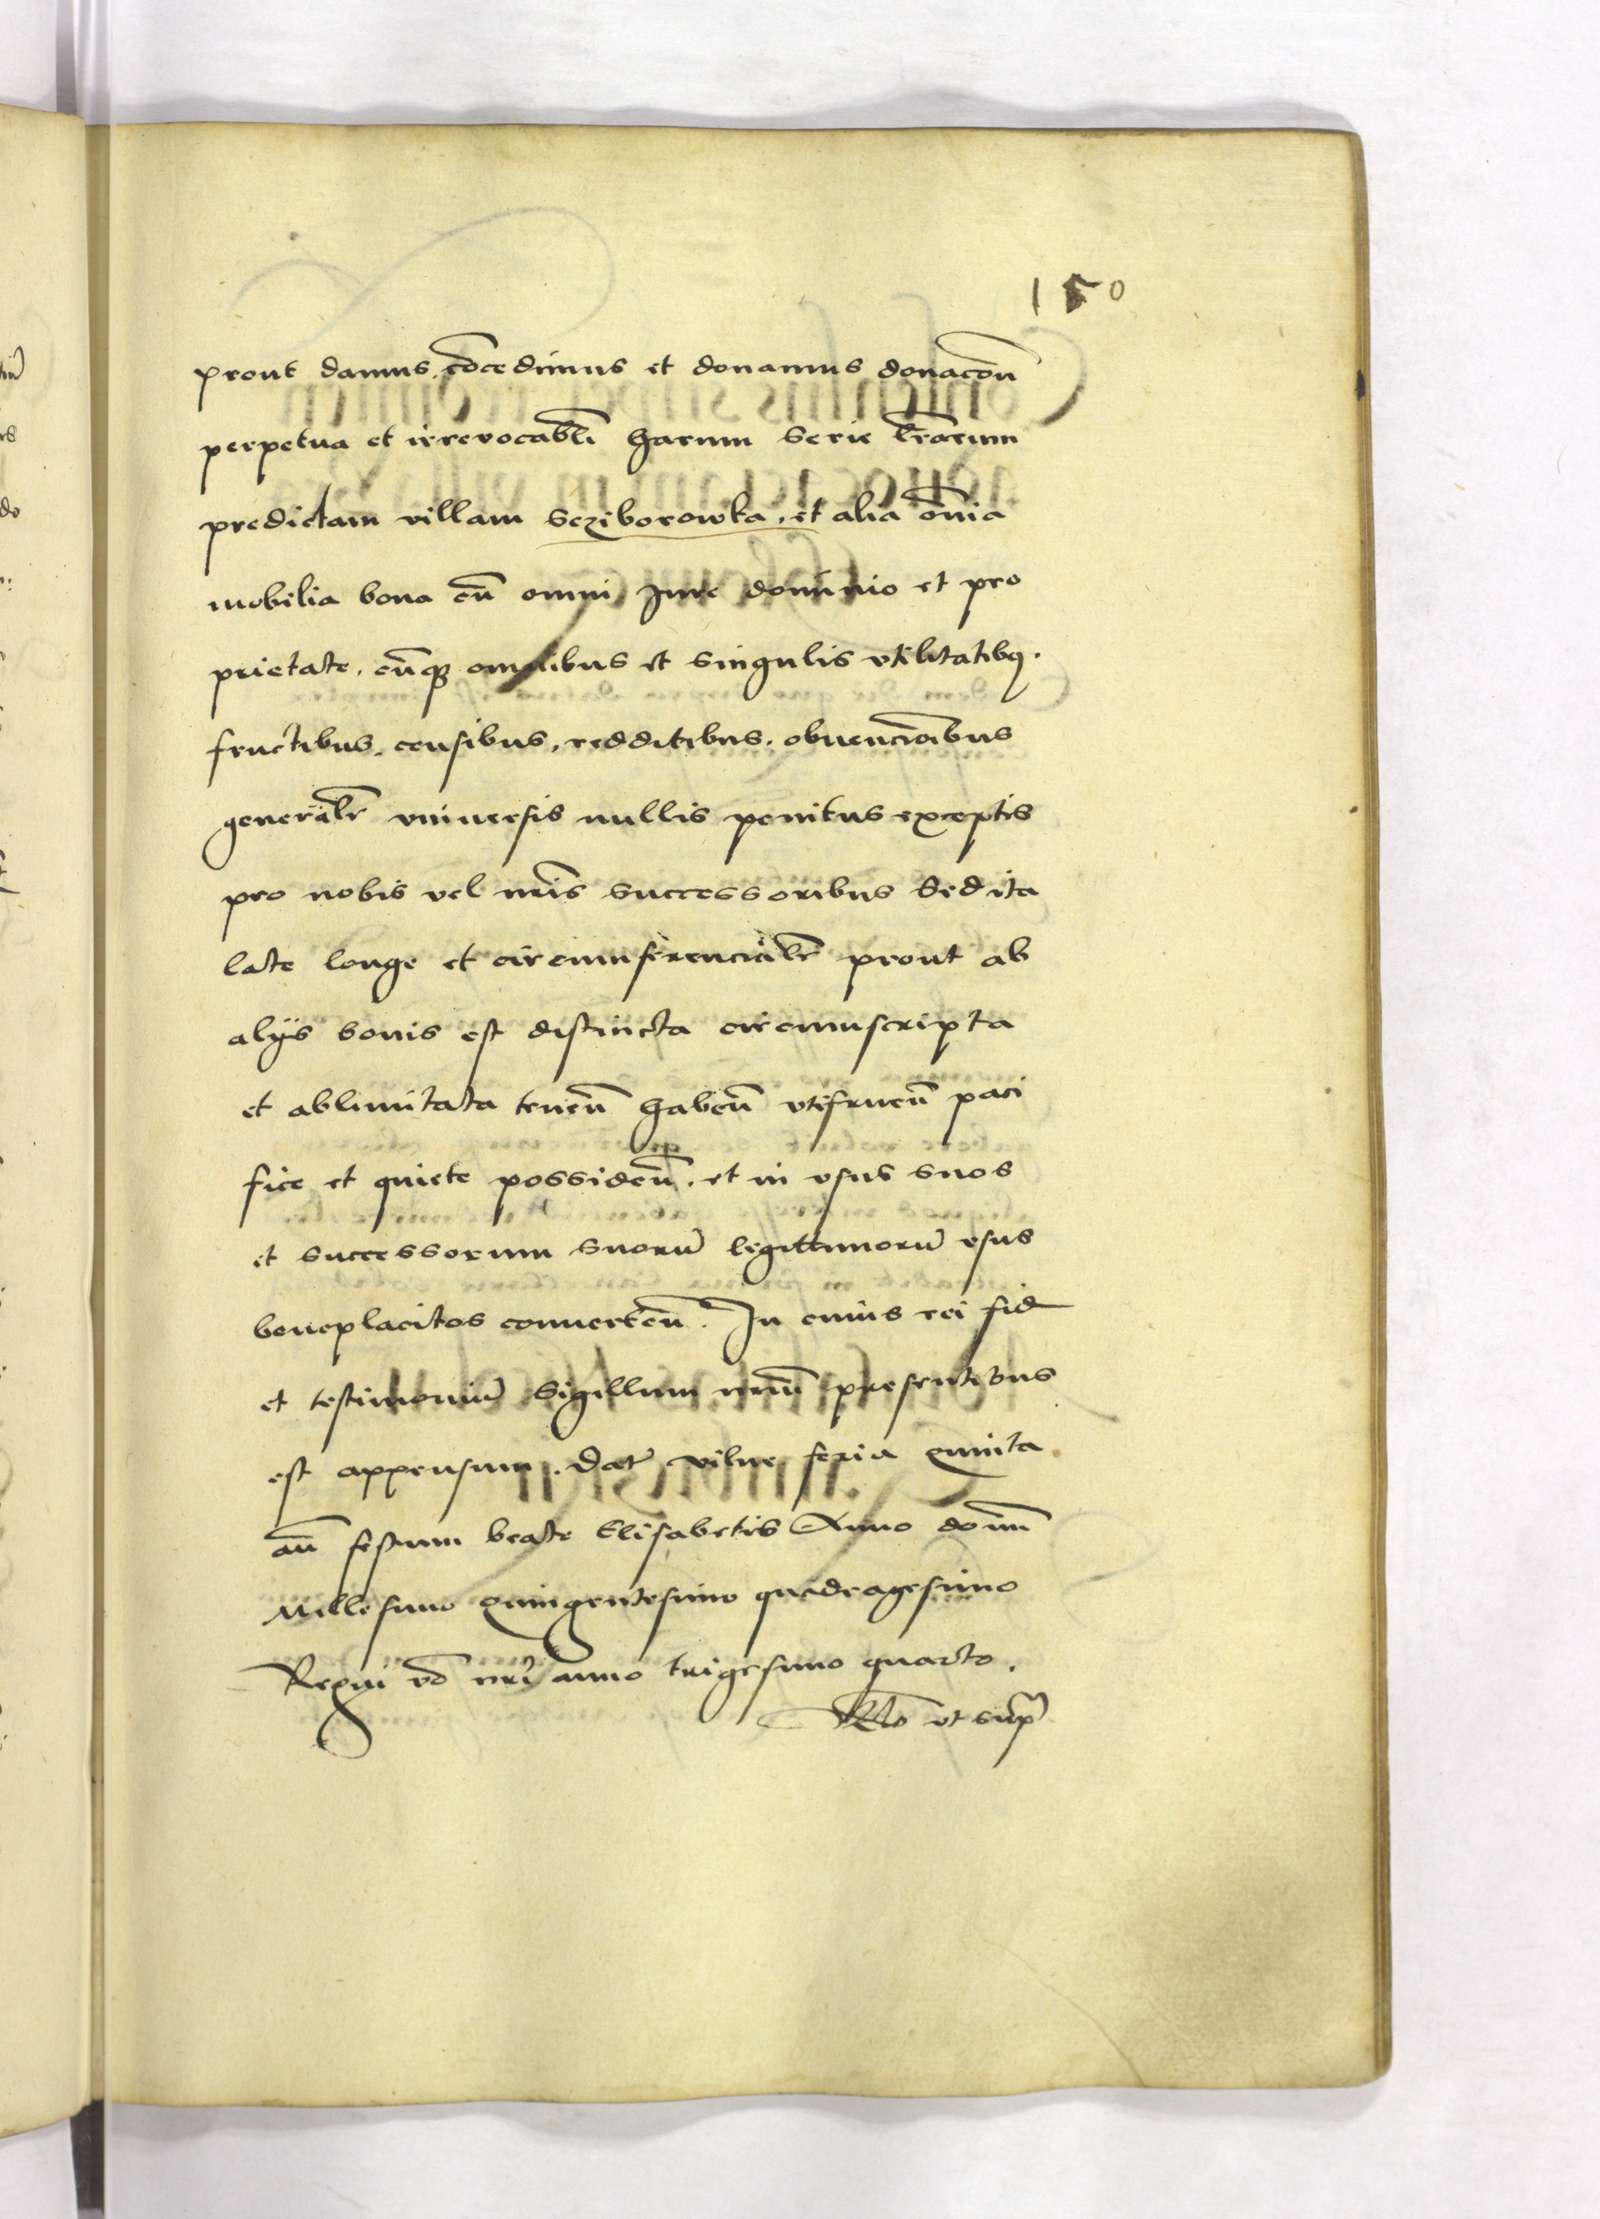 150
prout damus, cōcedimus et donamus donacōn̄
perpetua et irrevocabl̄i harum Serie l̄rarum
predictam villam Scziborowka, et alia ōnia
mobilia bona cū omni Jure dominio et pro
prietate, cūq3 omnibus et singulis vtilitatibq.
fructibus, censibus, redditibus, obvencōibus
general̄r vniversis nullis penitus exceptis
pro nobis vel nr̄is successoribus Sed ita
late longe et circumferencial̄r prout ab
alÿs bonis est distincta circumscripta
et ablimitata tenen̄ haben̄ vtifruen̄ paci
fice et quiete possiden̄. et in vsus suos
et successorum suorū legittimorū vsus
beneplacitos converten̄. In cuius rei fid
et testimoniū Sigillum nr̄um presentibus
est appensum. Dat̄ vilne feria quinta
an̄ festum beate Elisabetis Anno domī
Millesimo quingentesimo quadragesimo
Regni v̄o nr̄i anno trigesimo quarto.
ut sup̄